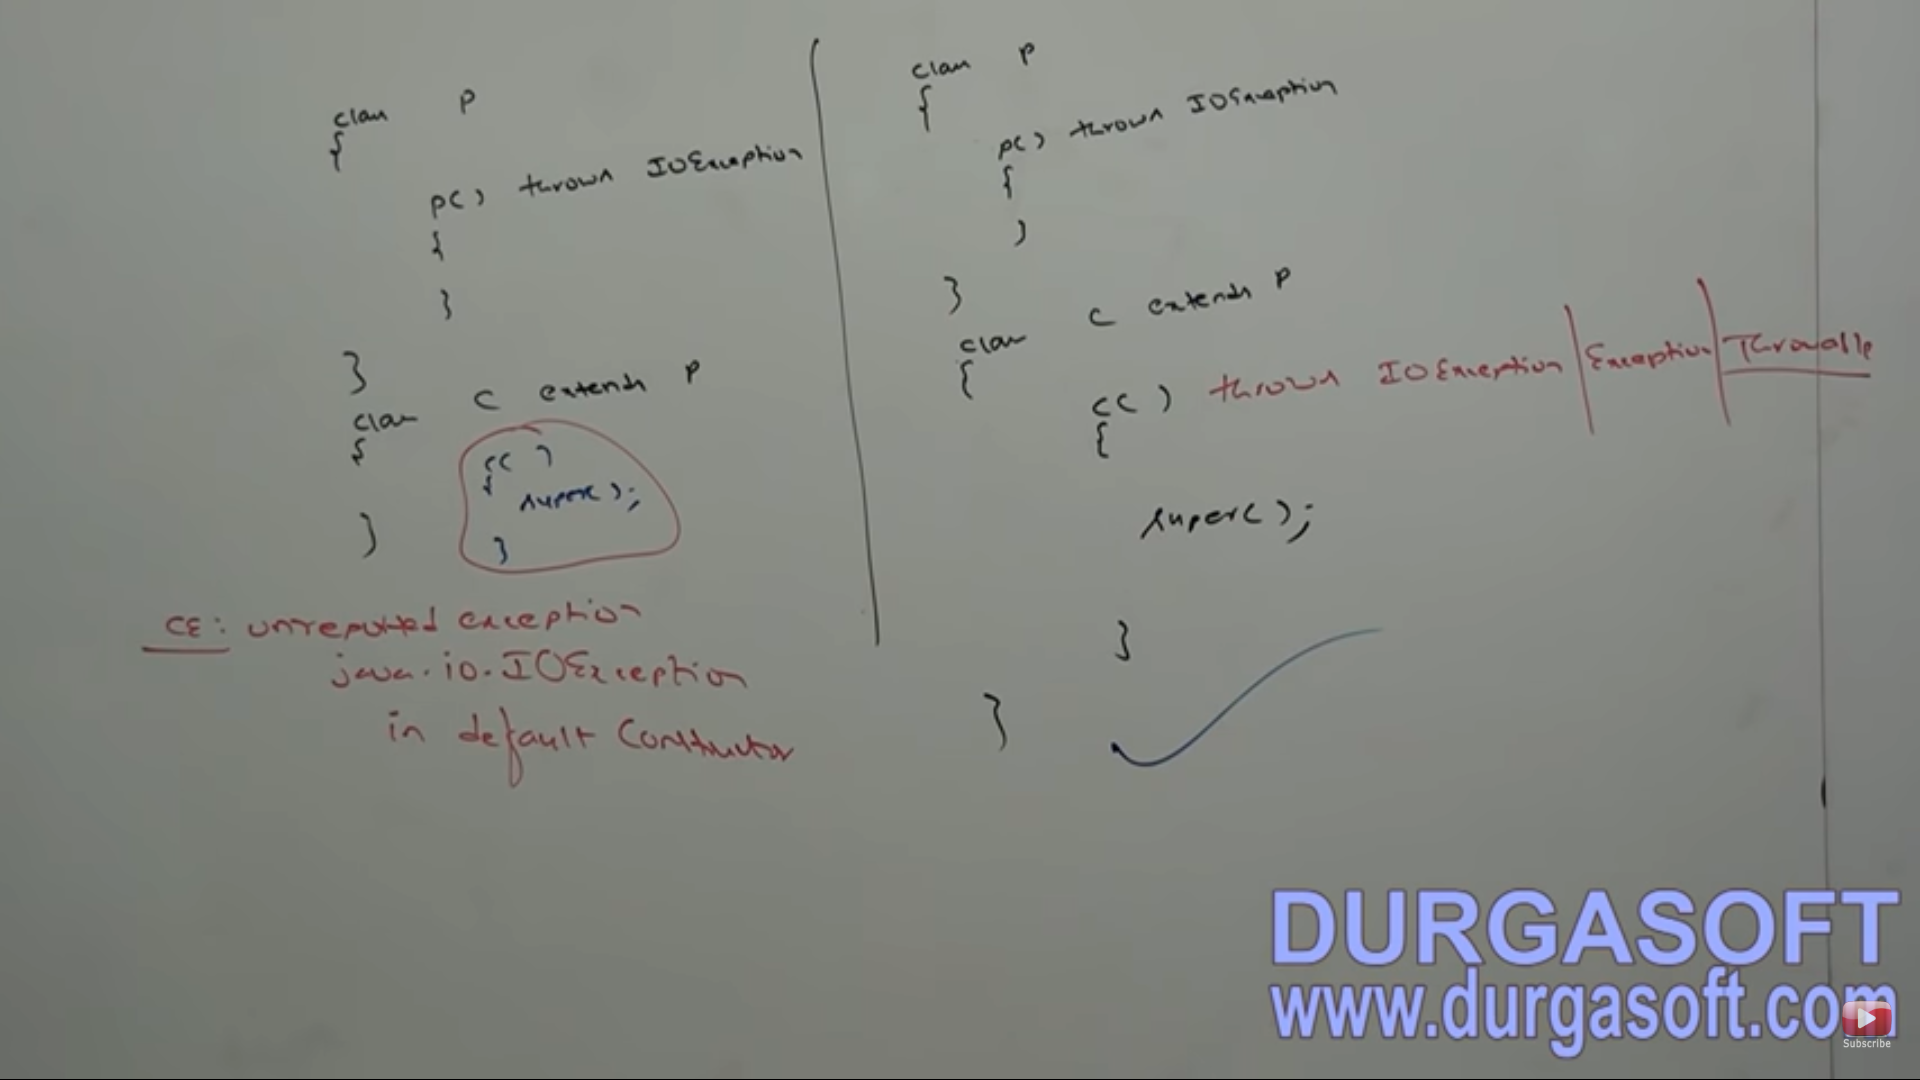 class P
{
P() throws IOException
{
}
}
class C extends P
{
C()
{
super();
}
}
CE: unreported exception
java.io.IOException
in default Constructor
class P
{
P() throws IOException
{
}
}
class C extends P
{
C() throws IOException | Exception | Throwable
{
super();
}
}
DURGASOFT
www.durgasoft.com
Subscribe